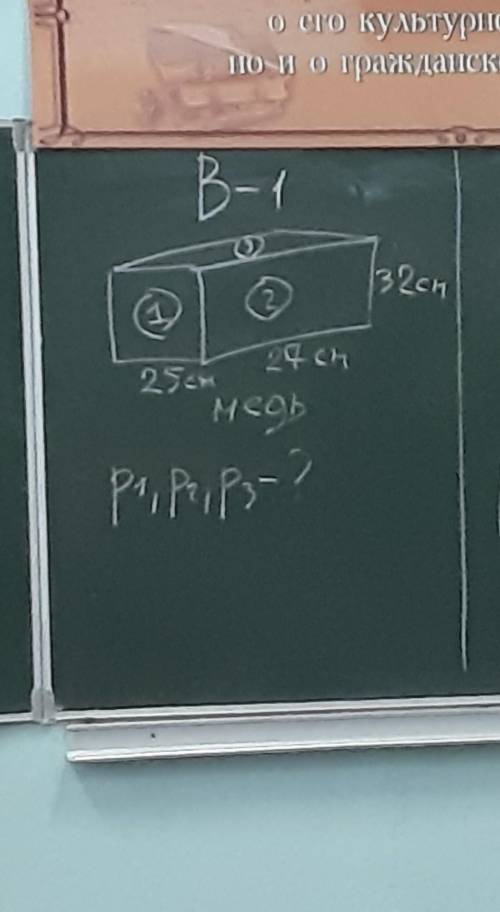 о его культурно
но и о гражданско
В-1
3
1
2
32см
25см
24 см
медь
p1, p2, p3 - ?